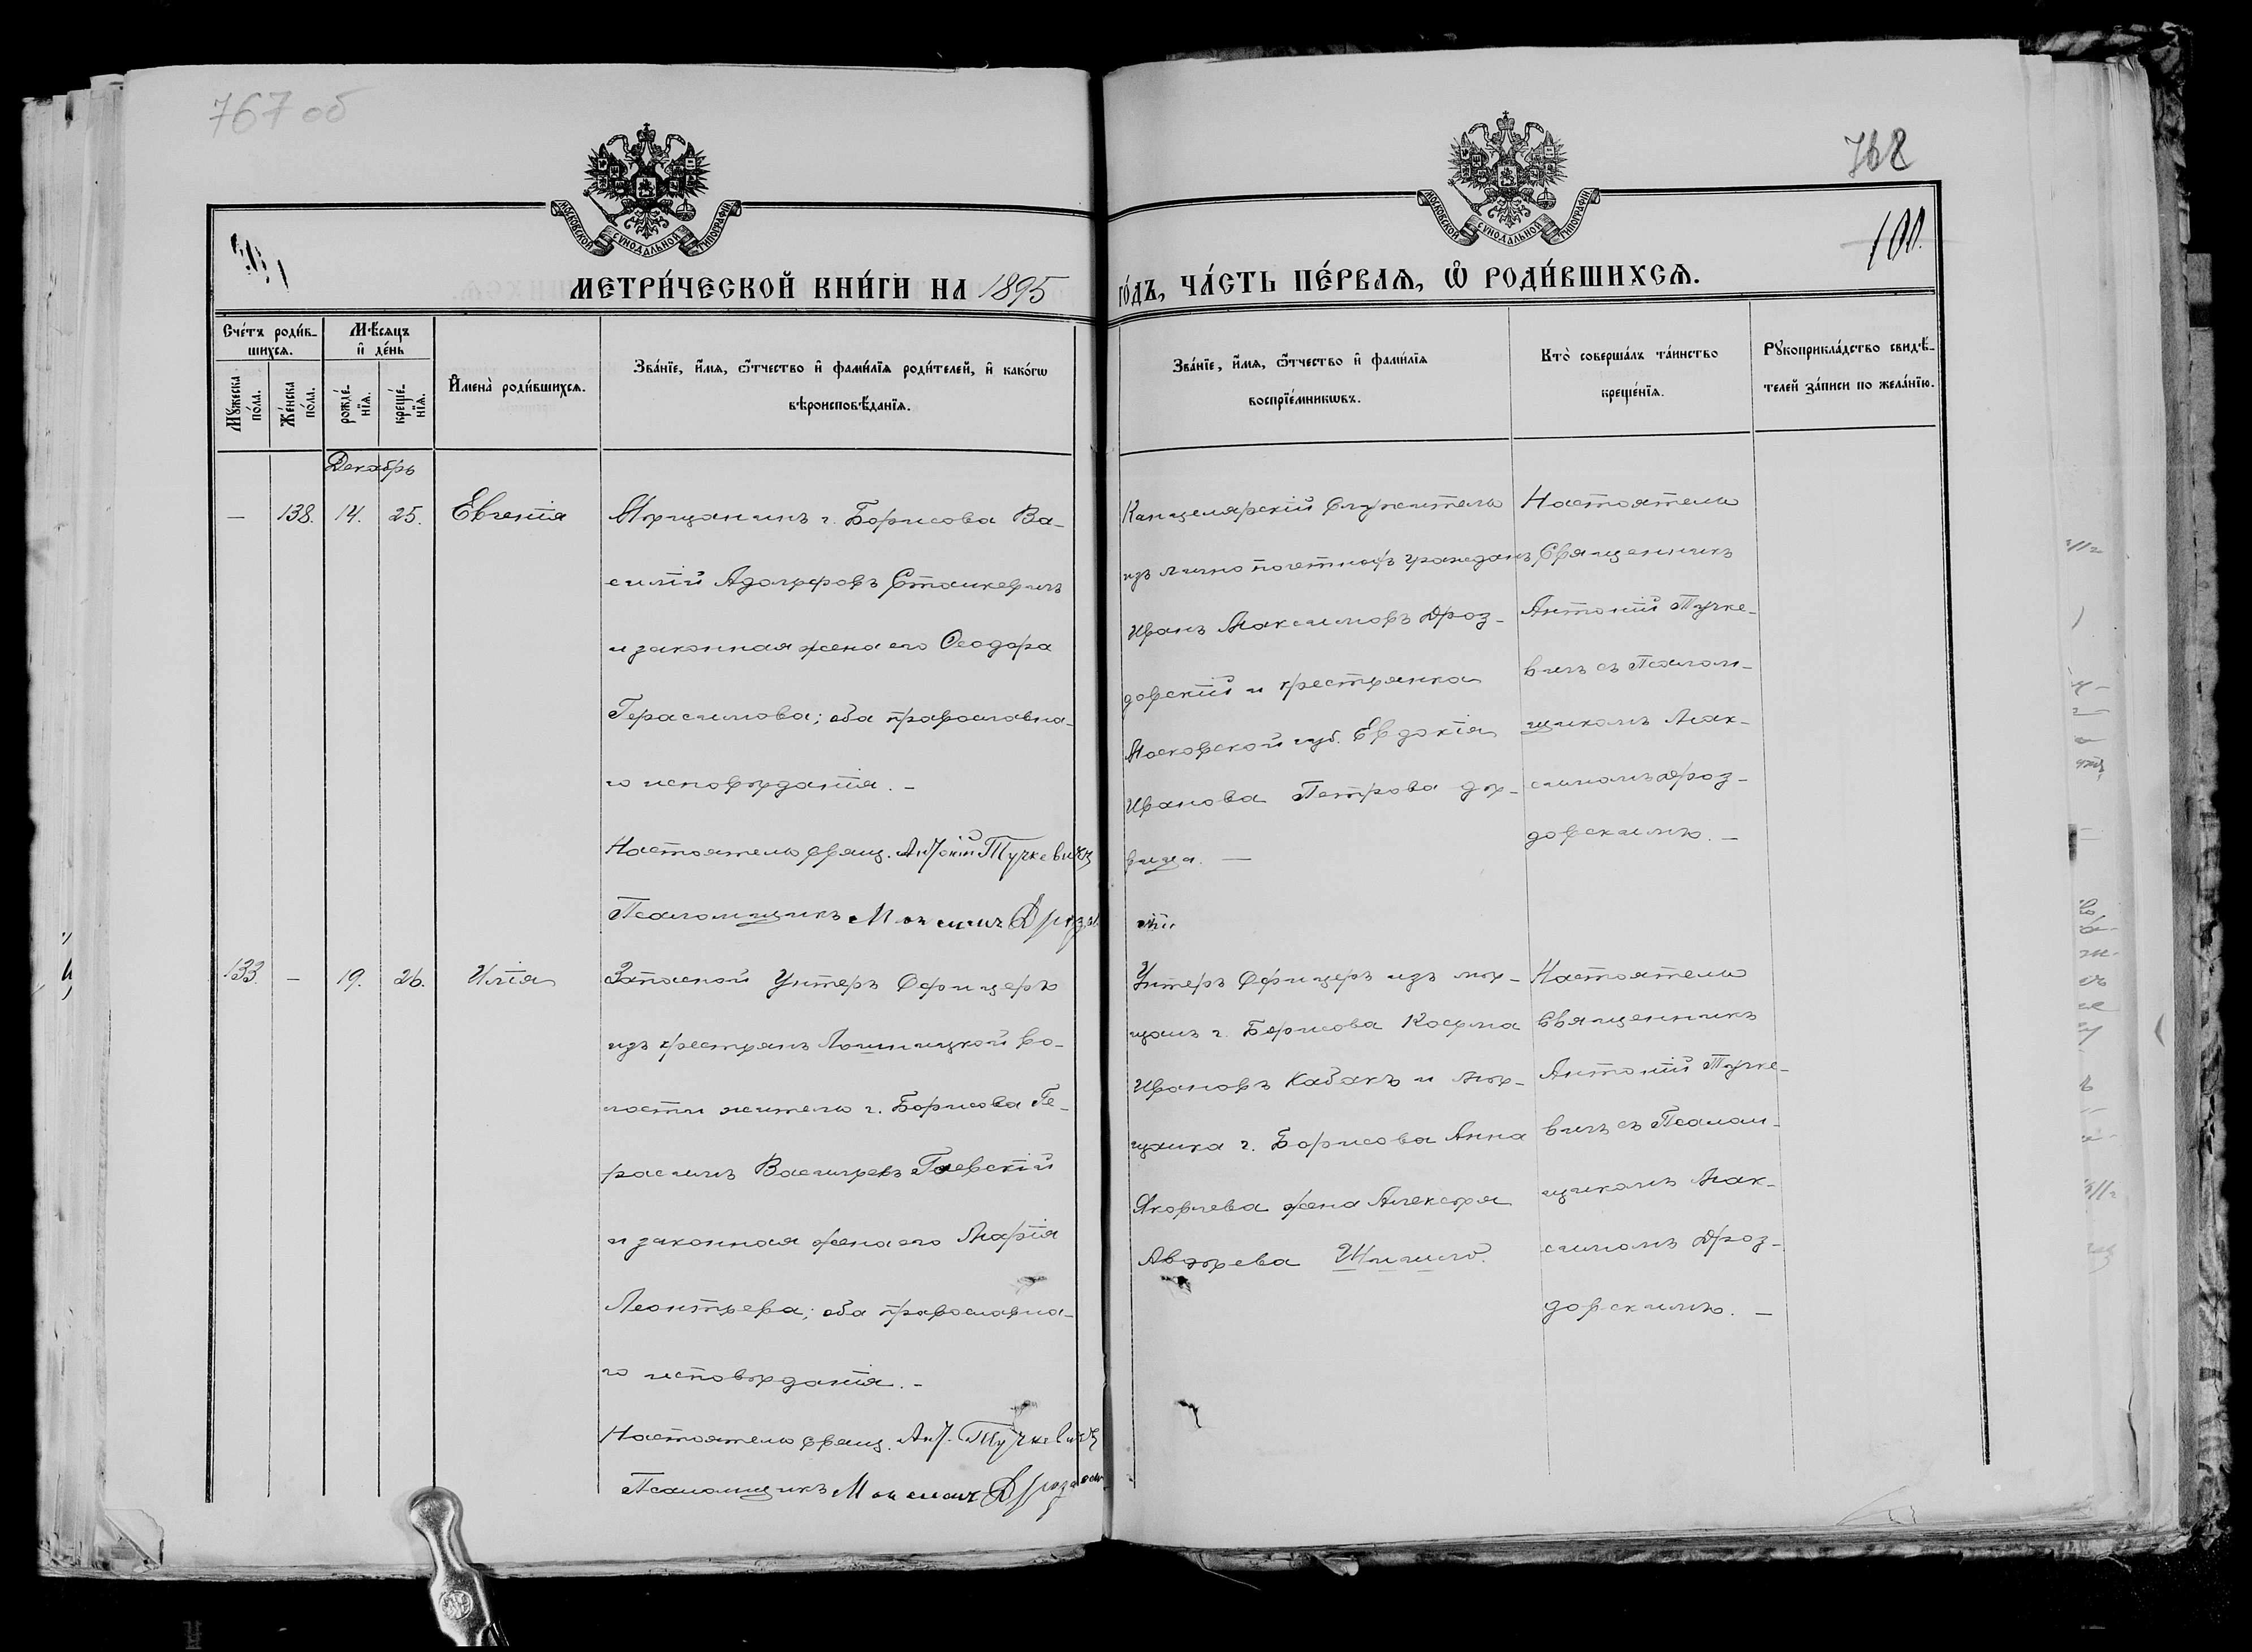 767 об
768
100.
МОСКОВСКОЙ СѴНОДАЛЬНОЙ ТИПОГРАФІИ
МОСКОВСКОЙ СѴНОДАЛЬНОЙ ТИПОГРАФІИ
МЕТРИ́ЧЕСКОЙ КНИ́ГИ НА 1895
ГО́ДЪ, ЧА́СТЬ ПЕ́РВАѦ, Ѡ РОДИ́ВШИХСѦ.
Сче́тъ роди́в-
шихсѧ.
Мѣ́сѧцъ
и҆ де́нь
Мꙋ́жеска
по́ла.
Же́нска
по́ла.
рожде́-
нїѧ.
креще́-
нїѧ.
И҆мена̀ роди́вшихсѧ.
Зва́нїе, и҆́мѧ, ѻ҆́тчество и҆ фами́лїѧ роди́телей, и҆ како́гѡ
вѣроисповѣ́данїѧ.
Зва́нїе, и҆́мѧ, ѻ҆́тчество и҆ фами́лїѧ
воспрїе́мникѡвъ.
Кто̀ соверша́лъ та́инство
креще́нїѧ.
Рꙋкоприкла́дство свидѣ́-
телей за́писи по жела́нїю.
Декабрь
— 138. 14. 25. Евгенія
Мѣщанинъ г. Борисова Ва-
силій Адольфовъ Станкевичъ
и законная жена его Ѳеодора
Герасимова; оба православна-
го исповѣданія. —
Настоятель свящ. Антоній Тучкевичъ
Псаломщикъ Максимъ Дроздов
скій
Канцелярскій служитель
изъ лично почетныхъ гражданъ
Иванъ Максимовъ Дроз-
довскій и крестьянка
Московской губ. Евдокія
Иванова Петрова дѣ-
вица. —
Настоятель
Священникъ
Антоній Тучке-
вичъ съ Псалом-
щикомъ Мак-
симомъ Дроз-
довскимъ. —
133. — 19. 26. Илія
Запасной Унтеръ Офицеръ
изъ крестьянъ Лошницкой во-
лости житель г. Борисова Ге-
расимъ Васильевъ Гаевскій
и законная жена его Марія
Леонтьева; оба православна-
го исповѣданія. —
Настоятель свящ. Ант. Тучкевичъ
Псаломщикъ Максимъ Дроздовскій
Унтеръ Офицеръ изъ мѣ-
щанъ г. Борисова Косьма
Ивановъ Кабакъ и мѣ-
щанка г. Борисова Анна
Яковлева жена Алексѣя
Авдѣева Шишло.
Настоятель
Священникъ
Антоній Тучке-
вичъ съ Псалом-
щикомъ Мак-
симомъ Дроз-
довскимъ. —